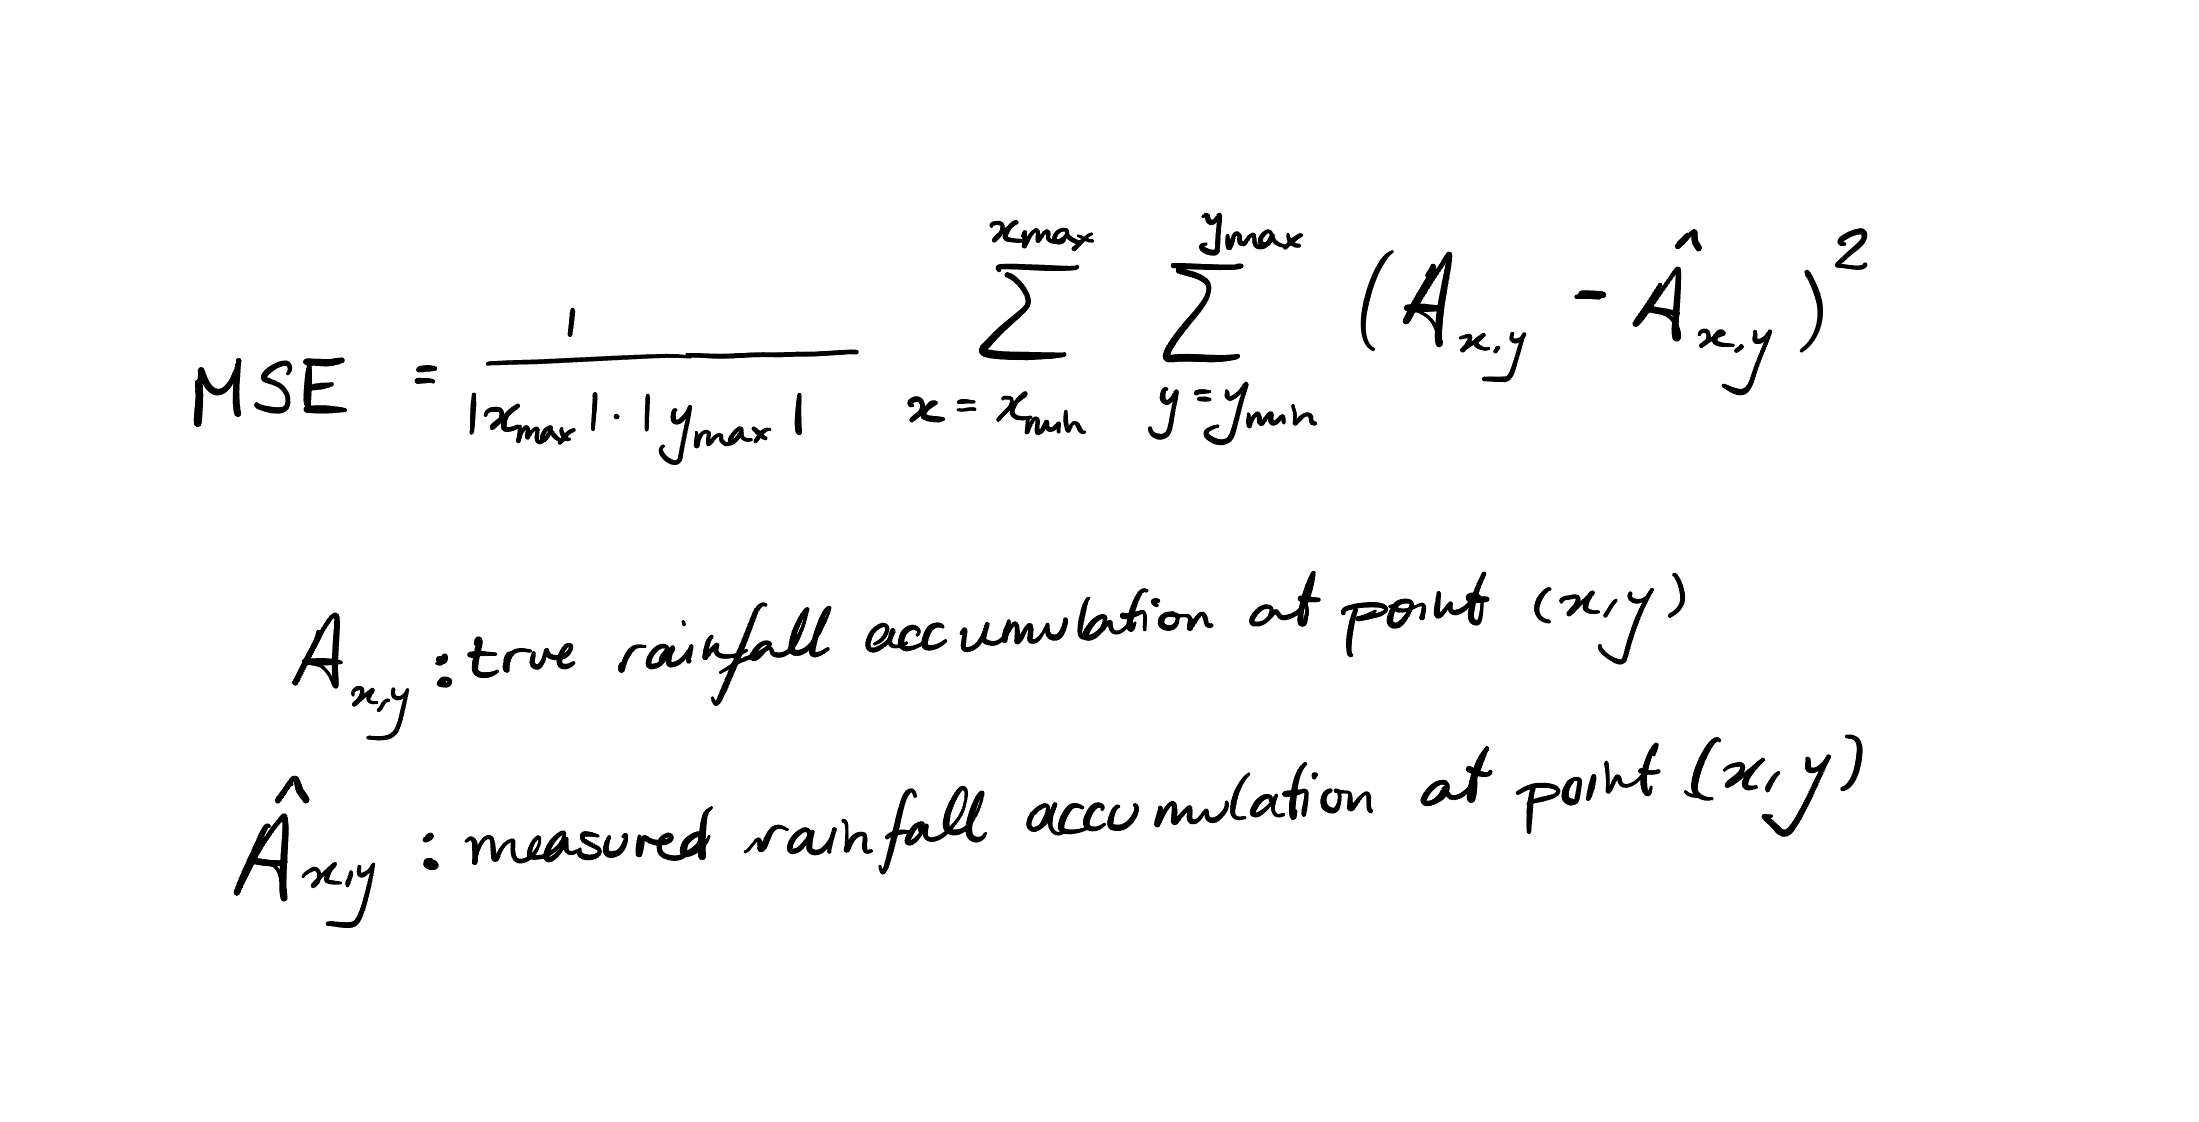 MSE = \frac{1}{|x_{max}| \cdot |y_{max}|} \sum_{x = x_{min}}^{x_{max}} \sum_{y = y_{min}}^{y_{max}} (A_{x,y} - \hat{A}_{x,y})^2
A_{x,y} : true rainfall accumulation at point (x,y)
\hat{A}_{x,y} : measured rainfall accumulation at point (x,y)